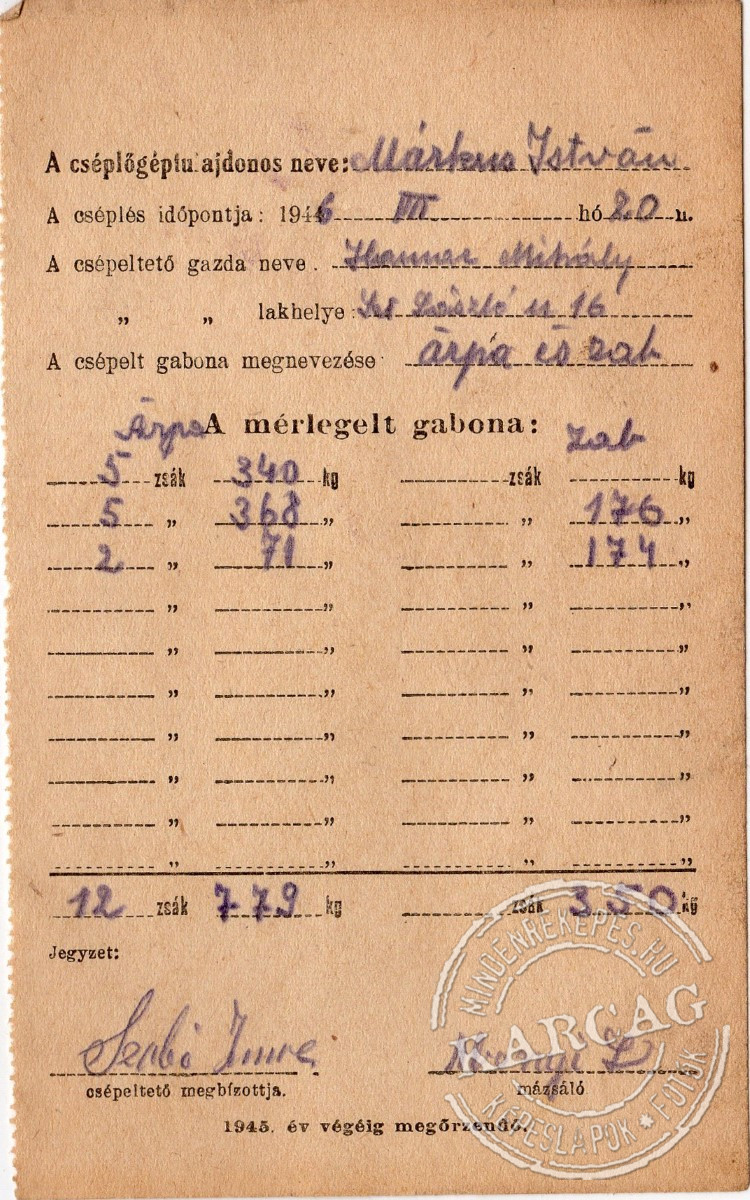 A cséplőgéptulajdonos neve: Márkus István
A cséplés időpontja: 1946 VII hó 20 n.
A csépeltető gazda neve. Mihály
„ „ lakhelye: Szt László u 16
A csépelt gabona megnevezése árpa és zab
Árpa A mérlegelt gabona: zab
5 zsák 340 kg zsák kg
5 „ 368 „ „ 176 „
2 „ 71 „ „ 174 „
„ „ „ „
„ „ „ „
„ „ „ „
„ „ „ „
„ „ „ „
„ „ „ „
„ „ „ „
12 zsák 779 kg zsák 350 kg
Jegyzet:
Szabó Imre
csépeltető megbízottja. mázsáló
1945. év végéig megőrzendő.
MINDENREKEPES.HU
KARCAG
KÉPESLAPOK * FOTÓK